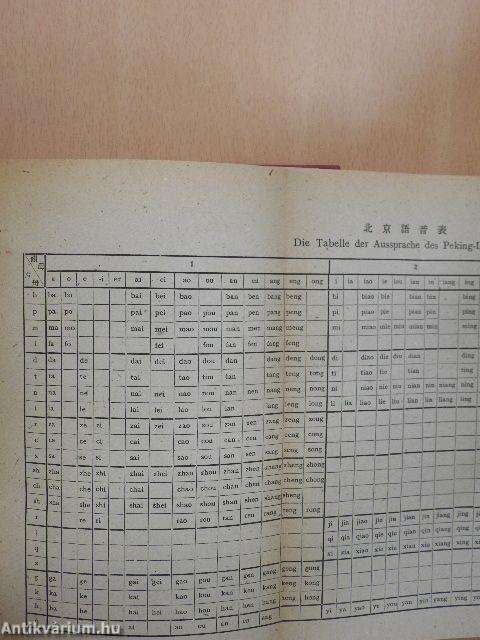 北京語音表
Die Tabelle der Aussprache des Peking-
1 2
a o e -i er ai ei ao ou an en ang eng ong i ia iao ie iu ian in iang ing
b ba bo bai bei bao ban ben bang beng bi biao bie bian bin bing
p pa po pai pei pao pou pan pen pang peng pi piao pie pian pin ping
m ma mo mai mei mao mou man men mang meng mi miao mie miu mian min ming
f fa fo fei fou fan fen fang feng
d da de dai dei dao dou dan dang deng dong di diao die diu dian ding
t ta te tai tao tou tan tang teng tong ti tiao tie tian ting
n na ne nai nei nao nou nan nen nang neng nong ni niao nie niu nian nin niang ning
l la le lai lei lao lou lan lang leng long li lia liao lie liu lian lin liang ling
z za ze zi zai zei zao zou zan zen zang zeng zong
c ca ce ci cai cao cou can cen cang ceng cong
s sa se si sai sao sou san sen sang seng song
zh zha zhe zhi zhai zhei zhao zhou zhan zhen zhang zheng zhong
ch cha che chi chai chao chou chan chen chang cheng chong
sh sha she shi shai shei shao shou shan shen shang sheng
r re ri rao rou ran ren rang reng rong
j ji jia jiao jie jiu jian jin jiang jing
q qi qia qiao qie qiu qian qin qiang qing
x xi xia xiao xie xiu xian xin xiang xing
g ga ge gai gei gao gou gan gen gang geng gong
k ka ke kai kao kou kan ken kang keng kong
h ha he hai hei hao hou han hen hang heng hong
a ai ao ou an en ang yi ya yao ye you yan yin yang ying
Antikvárium.hu